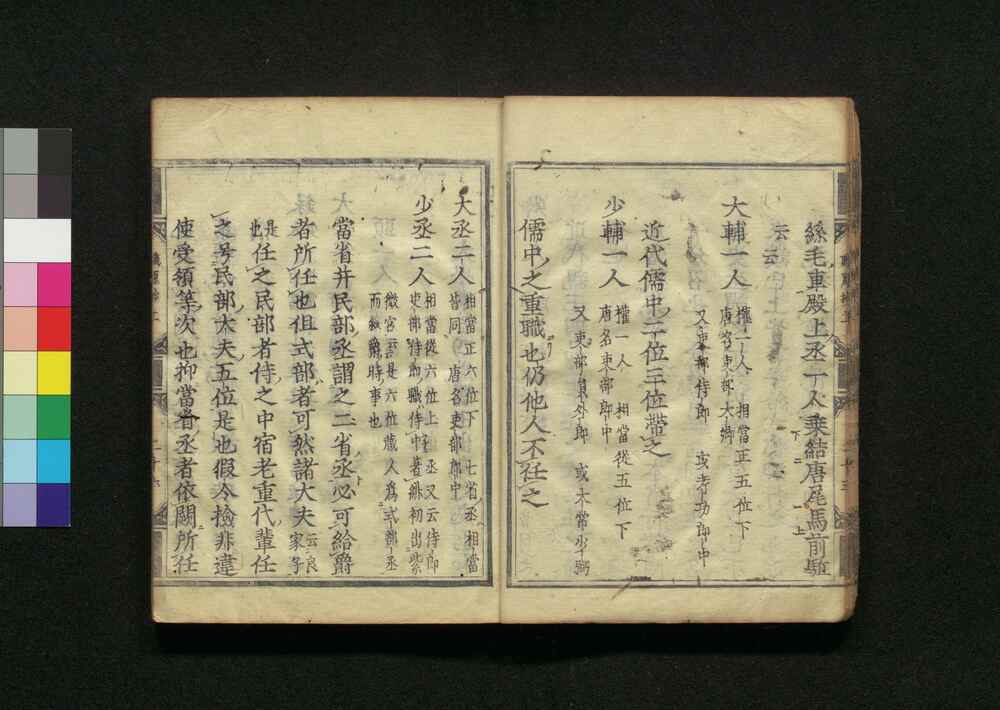 絲毛車殿上丞一人乗結唐尾馬前駈
云云
大輔一人
權一人 相當正五位下
唐名吏部大卿
又吏部侍郎 或考功郎中
近代儒中二位三位帯之
少輔一人
權一人 相當從五位下
唐名吏部郎中
又吏部員外郎 或大常少卿
儒中之重職也仍他人不任之
大丞二人
相當正六位下 七省丞相當
皆同 唐名吏部郎中
少丞二人
相當從六位上 丞又云侍郎
吏部侍郎職侍中者 初出紫
微宮云是六位蔵人為式部丞
而叙爵時事也
當省并民部丞謂之二省丞必可給爵
者所任也但式部者可然諸大夫
云良
家子
是
也
任之民部者侍之中宿老重代輩任
之号民部大夫五位是也假令撿非違
使受領等次也抑當省丞者依闕所任